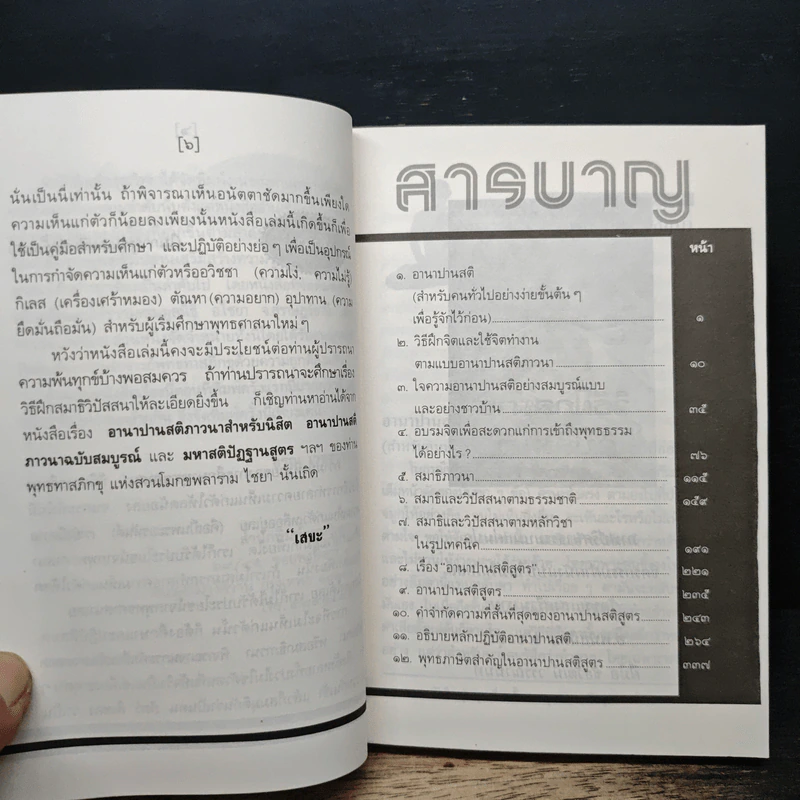 [๖]
นั่นเป็นนี่เท่านั้น ถ้าพิจารณาเห็นอนัตตาชัดมากขึ้นเพียงใด
ความเห็นแก่ตัวก็น้อยลงเพียงนั้นหนังสือเล่มนี้เกิดขึ้นก็เพื่อ
ใช้เป็นคู่มือสำหรับศึกษา และปฏิบัติอย่างย่อๆ เพื่อเป็นอุปกรณ์
ในการกำจัดความเห็นแก่ตัวหรืออวิชชา (ความโง่, ความไม่รู้)
กิเลส (เครื่องเศร้าหมอง) ตัณหา (ความอยาก) อุปาทาน (ความ
ยึดมั่นถือมั่น) สำหรับผู้เริ่มศึกษาพุทธศาสนาใหม่ๆ
หวังว่าหนังสือเล่มนี้คงจะมีประโยชน์ต่อท่านผู้ปรารถนา
ความพ้นทุกข์บ้างพอสมควร ถ้าท่านปรารถนาจะศึกษาเรื่อง
วิธีฝึกสมาธิวิปัสสนาให้ละเอียดยิ่งขึ้น ก็เชิญท่านหาอ่านได้จาก
หนังสือเรื่อง อานาปานสติภาวนาสำหรับนิสิต อานาปานสติ
ภาวนาฉบับสมบูรณ์ และ มหาสติปัฏฐานสูตร ฯลฯ ของท่าน
พุทธทาสภิกขุ แห่งสวนโมกขพลาราม ไชยา นั้นเถิด
"เสยะ"
สารบาญ
หน้า
๑. อานาปานสติ
(สำหรับคนทั่วไปอย่างง่ายขั้นต้น ๆ
เพื่อรู้จักไว้ก่อน) ๑
๒. วิธีฝึกจิตและใช้จิตทำงาน
ตามแบบอานาปานสติภาวนา ๑๐
๓. ใจความอานาปานสติอย่างสมบูรณ์แบบ
และอย่างชาวบ้าน ๓๕
๔. อบรมจิตเพื่อสะดวกแก่การเข้าถึงพุทธธรรม
ได้อย่างไร ? ๗๖
๕. สมาธิภาวนา ๑๑๕
๖. สมาธิและวิปัสสนาตามธรรมชาติ ๑๕๙
๗. สมาธิและวิปัสสนาตามหลักวิชา
ในรูปเทคนิค ๑๙๑
๘. เรื่อง "อานาปานสติสูตร" ๒๒๑
๙. อานาปานสติสูตร ๒๓๕
๑๐. คำจำกัดความที่สั้นที่สุดของอานาปานสติสูตร ๒๔๓
๑๑. อธิบายหลักปฏิบัติอานาปานสติ ๒๖๔
๑๒. พุทธภาษิตสำคัญในอานาปานสติสูตร ๓๓๗